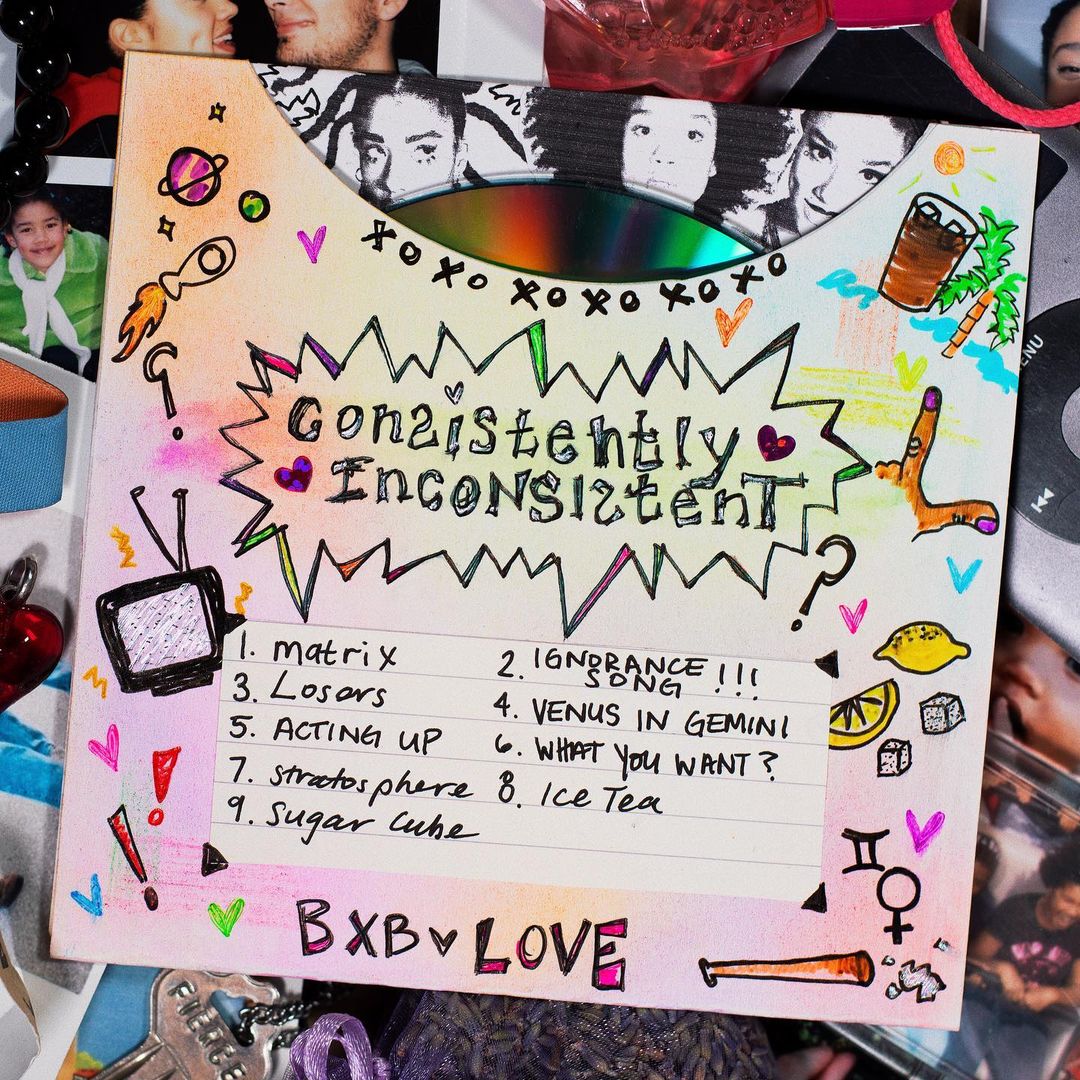 xo xo xo xo xo xo
Consistently
Inconsistent
1. matrix
2. IGNORANCE
SONG !!!
3. Losers
4. VENUS IN GEMINI
5. ACTING UP
6. WHAT YOU WANT?
7. stratosphere
8. Ice Tea
9. Sugar Cube
BXB LOVE
MENU
PIERCE